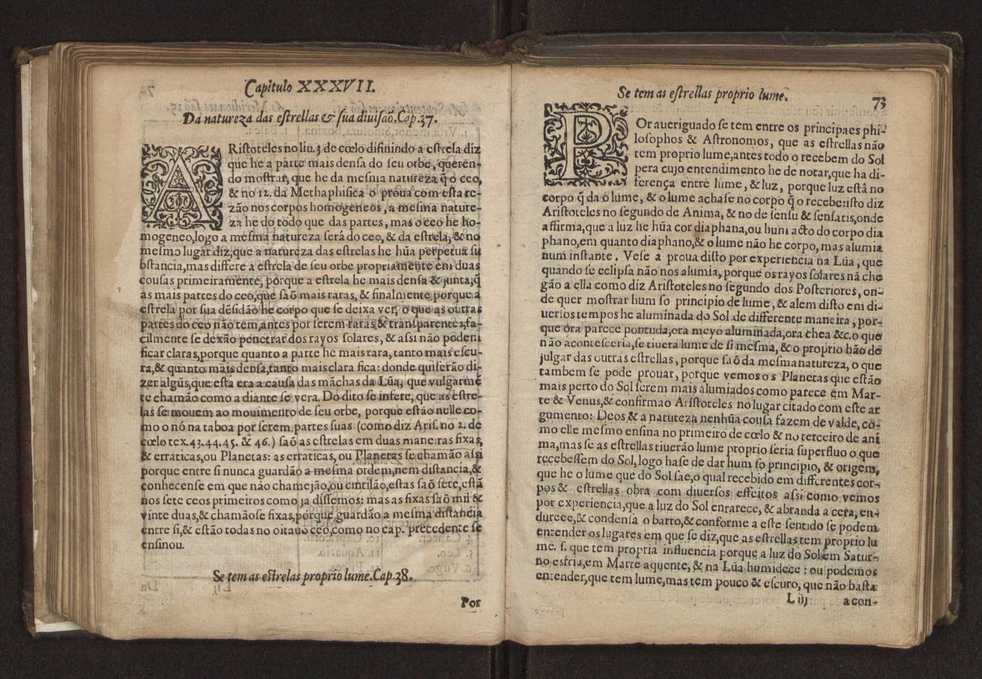 Capitulo XXXVII.
Da natureza das estrellas & sua diuisaõ. Cap. 37.
ARistoteles no liu. 3 de cœlo difinindo a estrela diz
que he a parte mais densa do seu orbe, queren-
do mostrar, que he da mesma natureza q̃ o ceo,
& no 12. da Methaphisica o proua com esta re-
zão nos corpos homogeneos, a mesma nature-
za he do todo que das partes, mas o ceo he ho-
mogeneo, logo a mesma natureza será do ceo, & da estrela, & no
mesmo lugar diz, que a natureza das estrelas he hũa perpetua su
bstancia, mas differe a estrela de seu orbe propriamente em duas
cousas primeiramente, porque a estrela he mais densa & junta, q̃
as mais partes do ceo, que saõ mais raras, & finalmente porque a
estrela por sua dẽsidão he corpo que se deixa ver, o que as outras
partes do ceo não tem, antes por serem raras, & transparentes, fa-
cilmente se dexão penetrar dos rayos solares, & assi não podem
ficar claras, porque quanto a parte he mais rara, tanto mais escu-
ra, & quanto mais densa, tanto mais clara fica: donde quiserão di-
zer algũs, que esta era a causa das mãchas da Lũa, que vulgarmẽ
te chamão como a diante se vera. Do dito se infere, que as estre-
las se mouem ao mouimento de seu orbe, porque estão nelle co-
mo o nó na taboa por serem partes suas (como diz Aris. no 2. de
cœlo tex. 43. 44. 45. & 46.) saõ as estrelas em duas maneiras fixas,
& erraticas, ou Planetas: as erraticas, ou Planetas se chamão assi
porque entre si nunca guardão a mesma ordem, nem distancia, &
conhecense em que não chamejão, ou cintilão, estas saõ sete, estã
nos sete ceos primeiros como ja dissemos: mas as fixas saõ mil &
vinte duas, & chamãose fixas, porque guardão a mesma distancia
entre si, & estão todas no oitauo ceo, como no cap. precedente se
ensinou.
Se tem as estrelas proprio lume. Cap. 38.
Por
Se tem as estrellas proprio lume.
73
POr aueriguado se tem entre os principaes phi-
losophos & Astronomos, que as estrellas não
tem proprio lume, antes todo o recebem do Sol
pera cujo entendimento he de notar, que ha di-
ferença entre lume, & luz, porque luz está no
corpo q̃ da o lume, & o lume achase no corpo q̃ o recebe: isto diz
Aristoteles no segundo de Anima, & no de sensu & sensatis, onde
affirma, que a luz he hũa cor diaphana, ou hum acto do corpo dia
phano, em quanto diaphano, & o lume não he corpo, mas alumia
num instante. Vese a proua disto por experiencia na Lũa, que
quando se eclipsa não nos alumia, porque os rayos solares nã che
gão a ella como diz Aristoteles no segundo dos Posteriores, on-
de quer mostrar hum so principio de lume, & alem disto em di-
uersos tempos he aluminada do Sol de differente maneira, por-
que ora parece pontuda, ora meyo aluminada, ora chea &c. o que
não aconteseria, se tiuera lume de si mesma, & o proprio hão de
julgar das outras estrellas, porque saõ da mesma natureza, o que
tambem se pode prouar, porque vemos os Planetas que estão
mais perto do Sol serem mais alumiados como parece em Mar-
te & Venus, & confirma o Aristoteles no lugar citado com este ar
gumento: Deos & a natureza nenhũa cousa fazem de valde, cõ-
mo elle mesmo ensina no primeiro de cœlo & no terceiro de ani
ma, mas se as estrellas tiuerão lume proprio seria superfluo o que
recebessem do Sol, logo hase de dar hum so principio, & origem,
que he o lume que do Sol sae, o qual recebido em differentes cor-
pos & estrellas obra com diuersos effeitos assi como vemos
por experiencia, que a luz do Sol enrarece, & abranda a cera, en-
durece, & condensa o barro, & conforme a este sentido se podem
entender os lugares em que se diz, que as estrellas tem proprio lu
me. s. que tem propria influencia porque a luz do Sol em Satur-
no esfria, em Marte aquente, & na Lũa humidece: ou podemos
entender, que tem lume, mas tem pouco & escuro, que não basta
L iij a con-